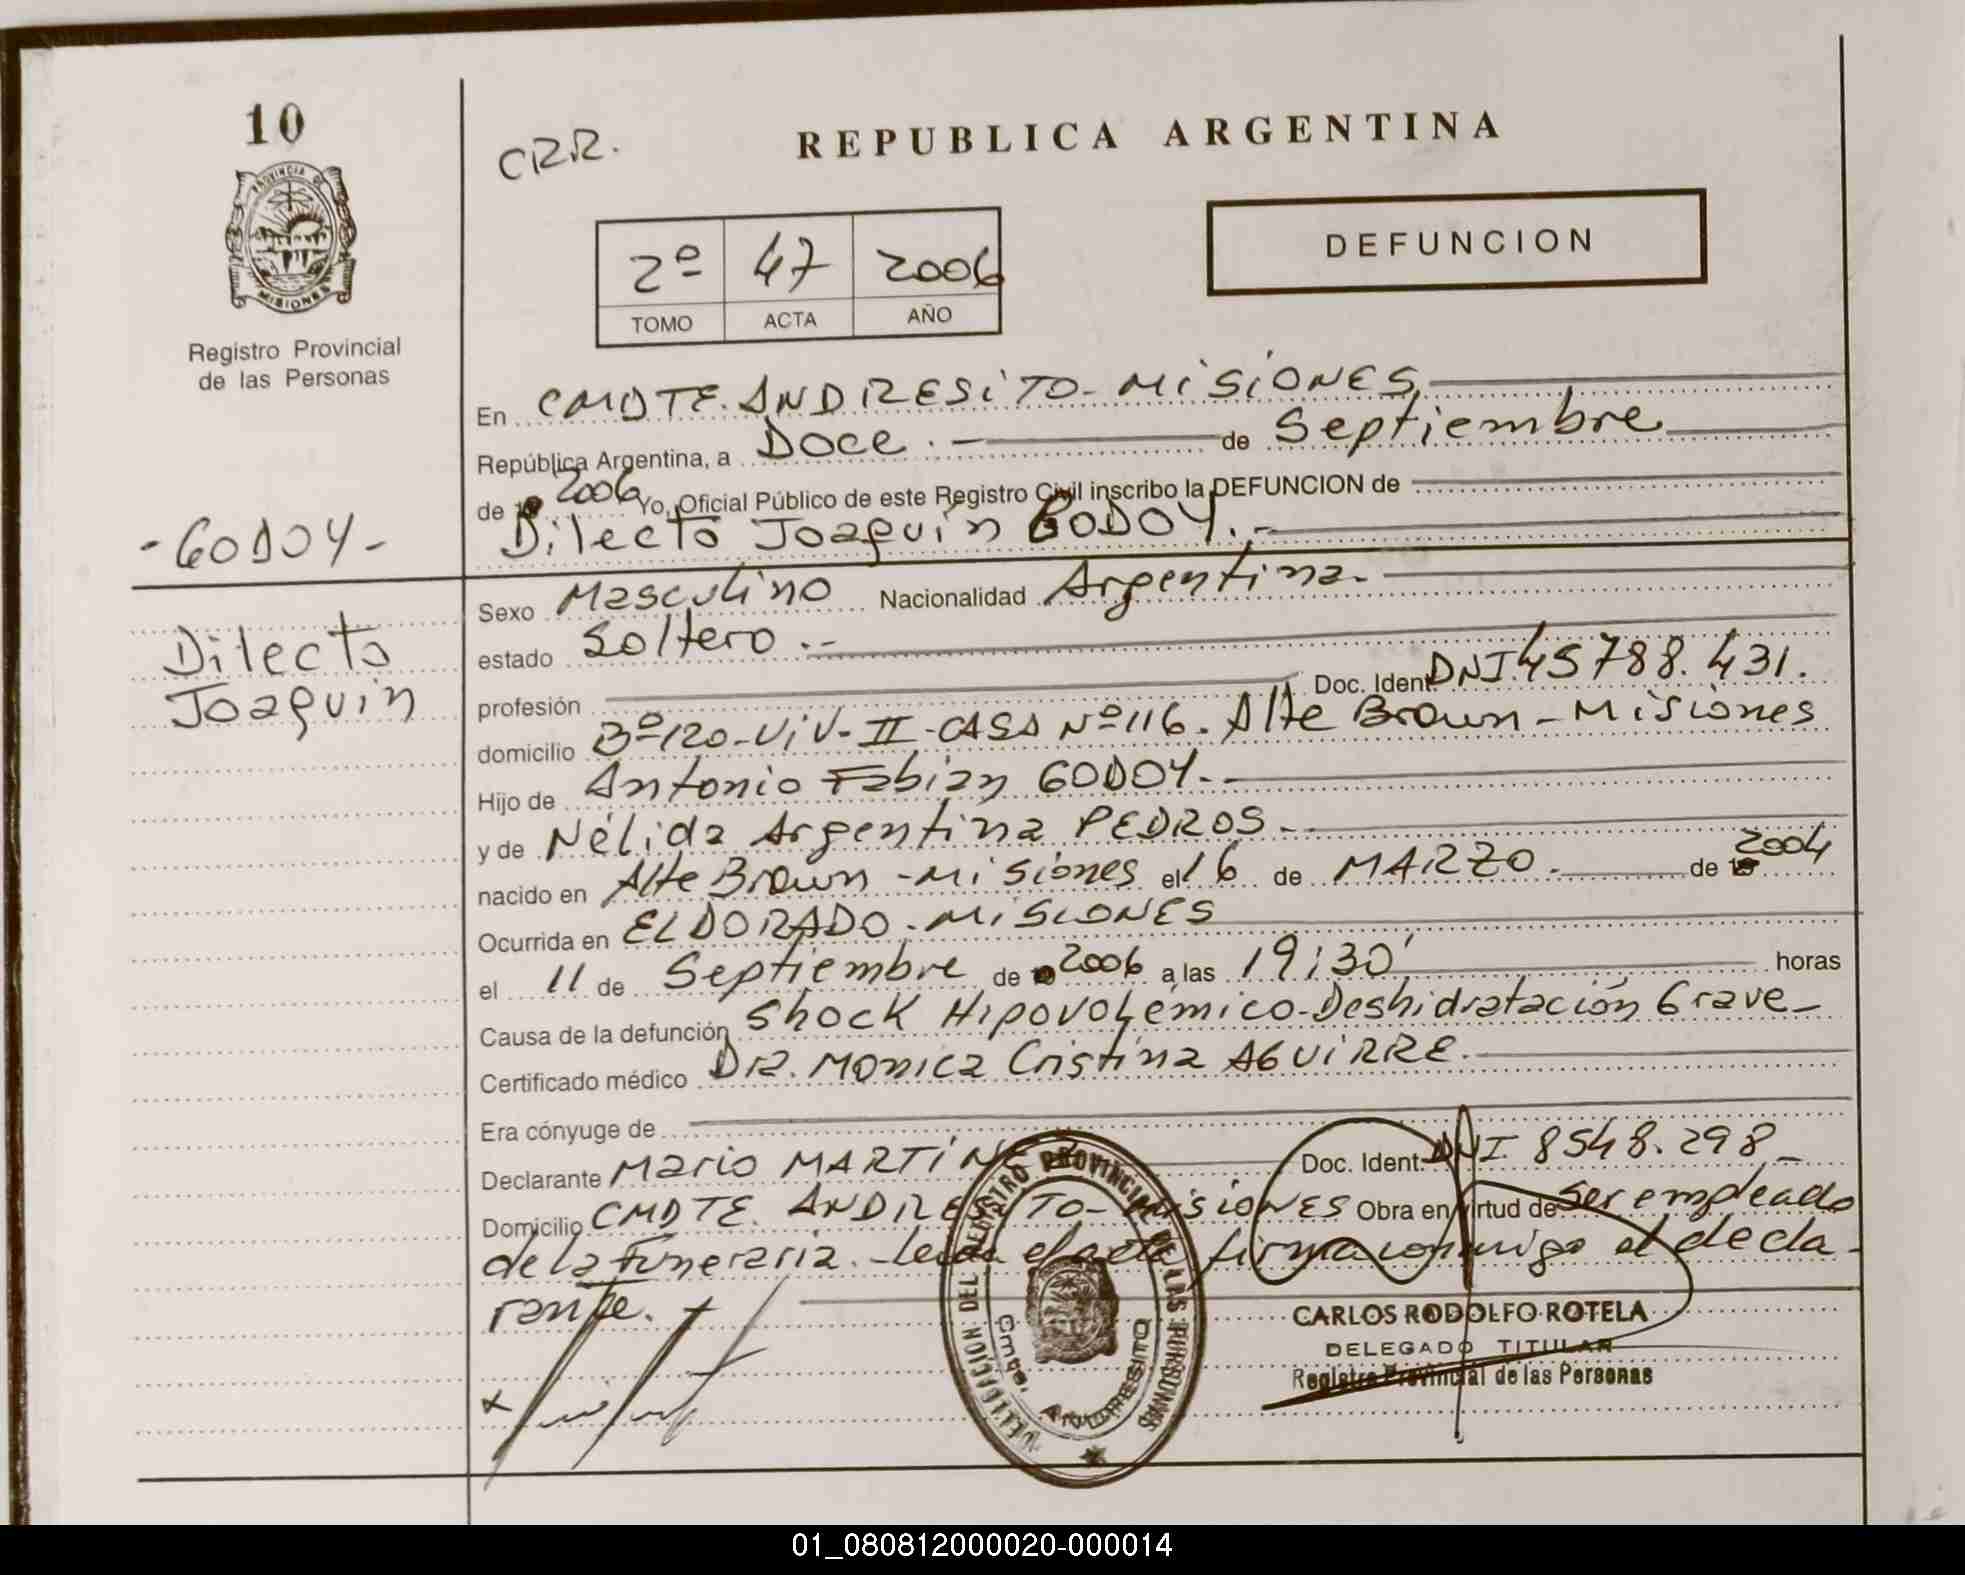 10
PROVINCIA DE
MISIONES
Registro Provincial
de las Personas
CRR.
REPUBLICA ARGENTINA
2º 47 2006
TOMO ACTA AÑO
DEFUNCION
En CMDTE. ANDRESITO - MISIONES
República Argentina, a Doce . - de Septiembre
de 2006 Yo, Oficial Público de este Registro Civil inscribo la DEFUNCION de
- GODOY - Dilecto Joaquín GODOY. -
Dilecto
Joaquín
Sexo Masculino Nacionalidad Argentina.
estado Soltero . -
profesión Doc. Ident. DNI. 45788.431.
domicilio Bº 120 - Viv - II - CASA Nº 116. Alte Brown - Misiones
Hijo de Antonio Fabian GODOY. -
y de Nélida Argentina PEDROS -
nacido en Alte Brown - Misiones el 16 de MARZO. de 2004
Ocurrida en ELDORADO - MISIONES
el 11 de Septiembre de 2006 a las 19:30' horas
Causa de la defunción Shock Hipovolémico - Deshidratación Grave -
Certificado médico DR. Monica Cristina AGUIRRE. -
Era cónyuge de
Declarante Mario MARTINEZ Doc. Ident. DNI 8548.298 -
Domicilio CMDTE. ANDRESITO - MISIONES Obra en virtud de Ser empleado
de la Funeraria. - Leida el acta firma conmigo el decla-
rante.
DELEGACION DEL REGISTRO PROVINCIAL DE LAS PERSONAS
Cmte. ANDRESITO
CARLOS RODOLFO ROTELA
DELEGADO TITULAR
Registro Provincial de las Personas
01_080812000020-000014